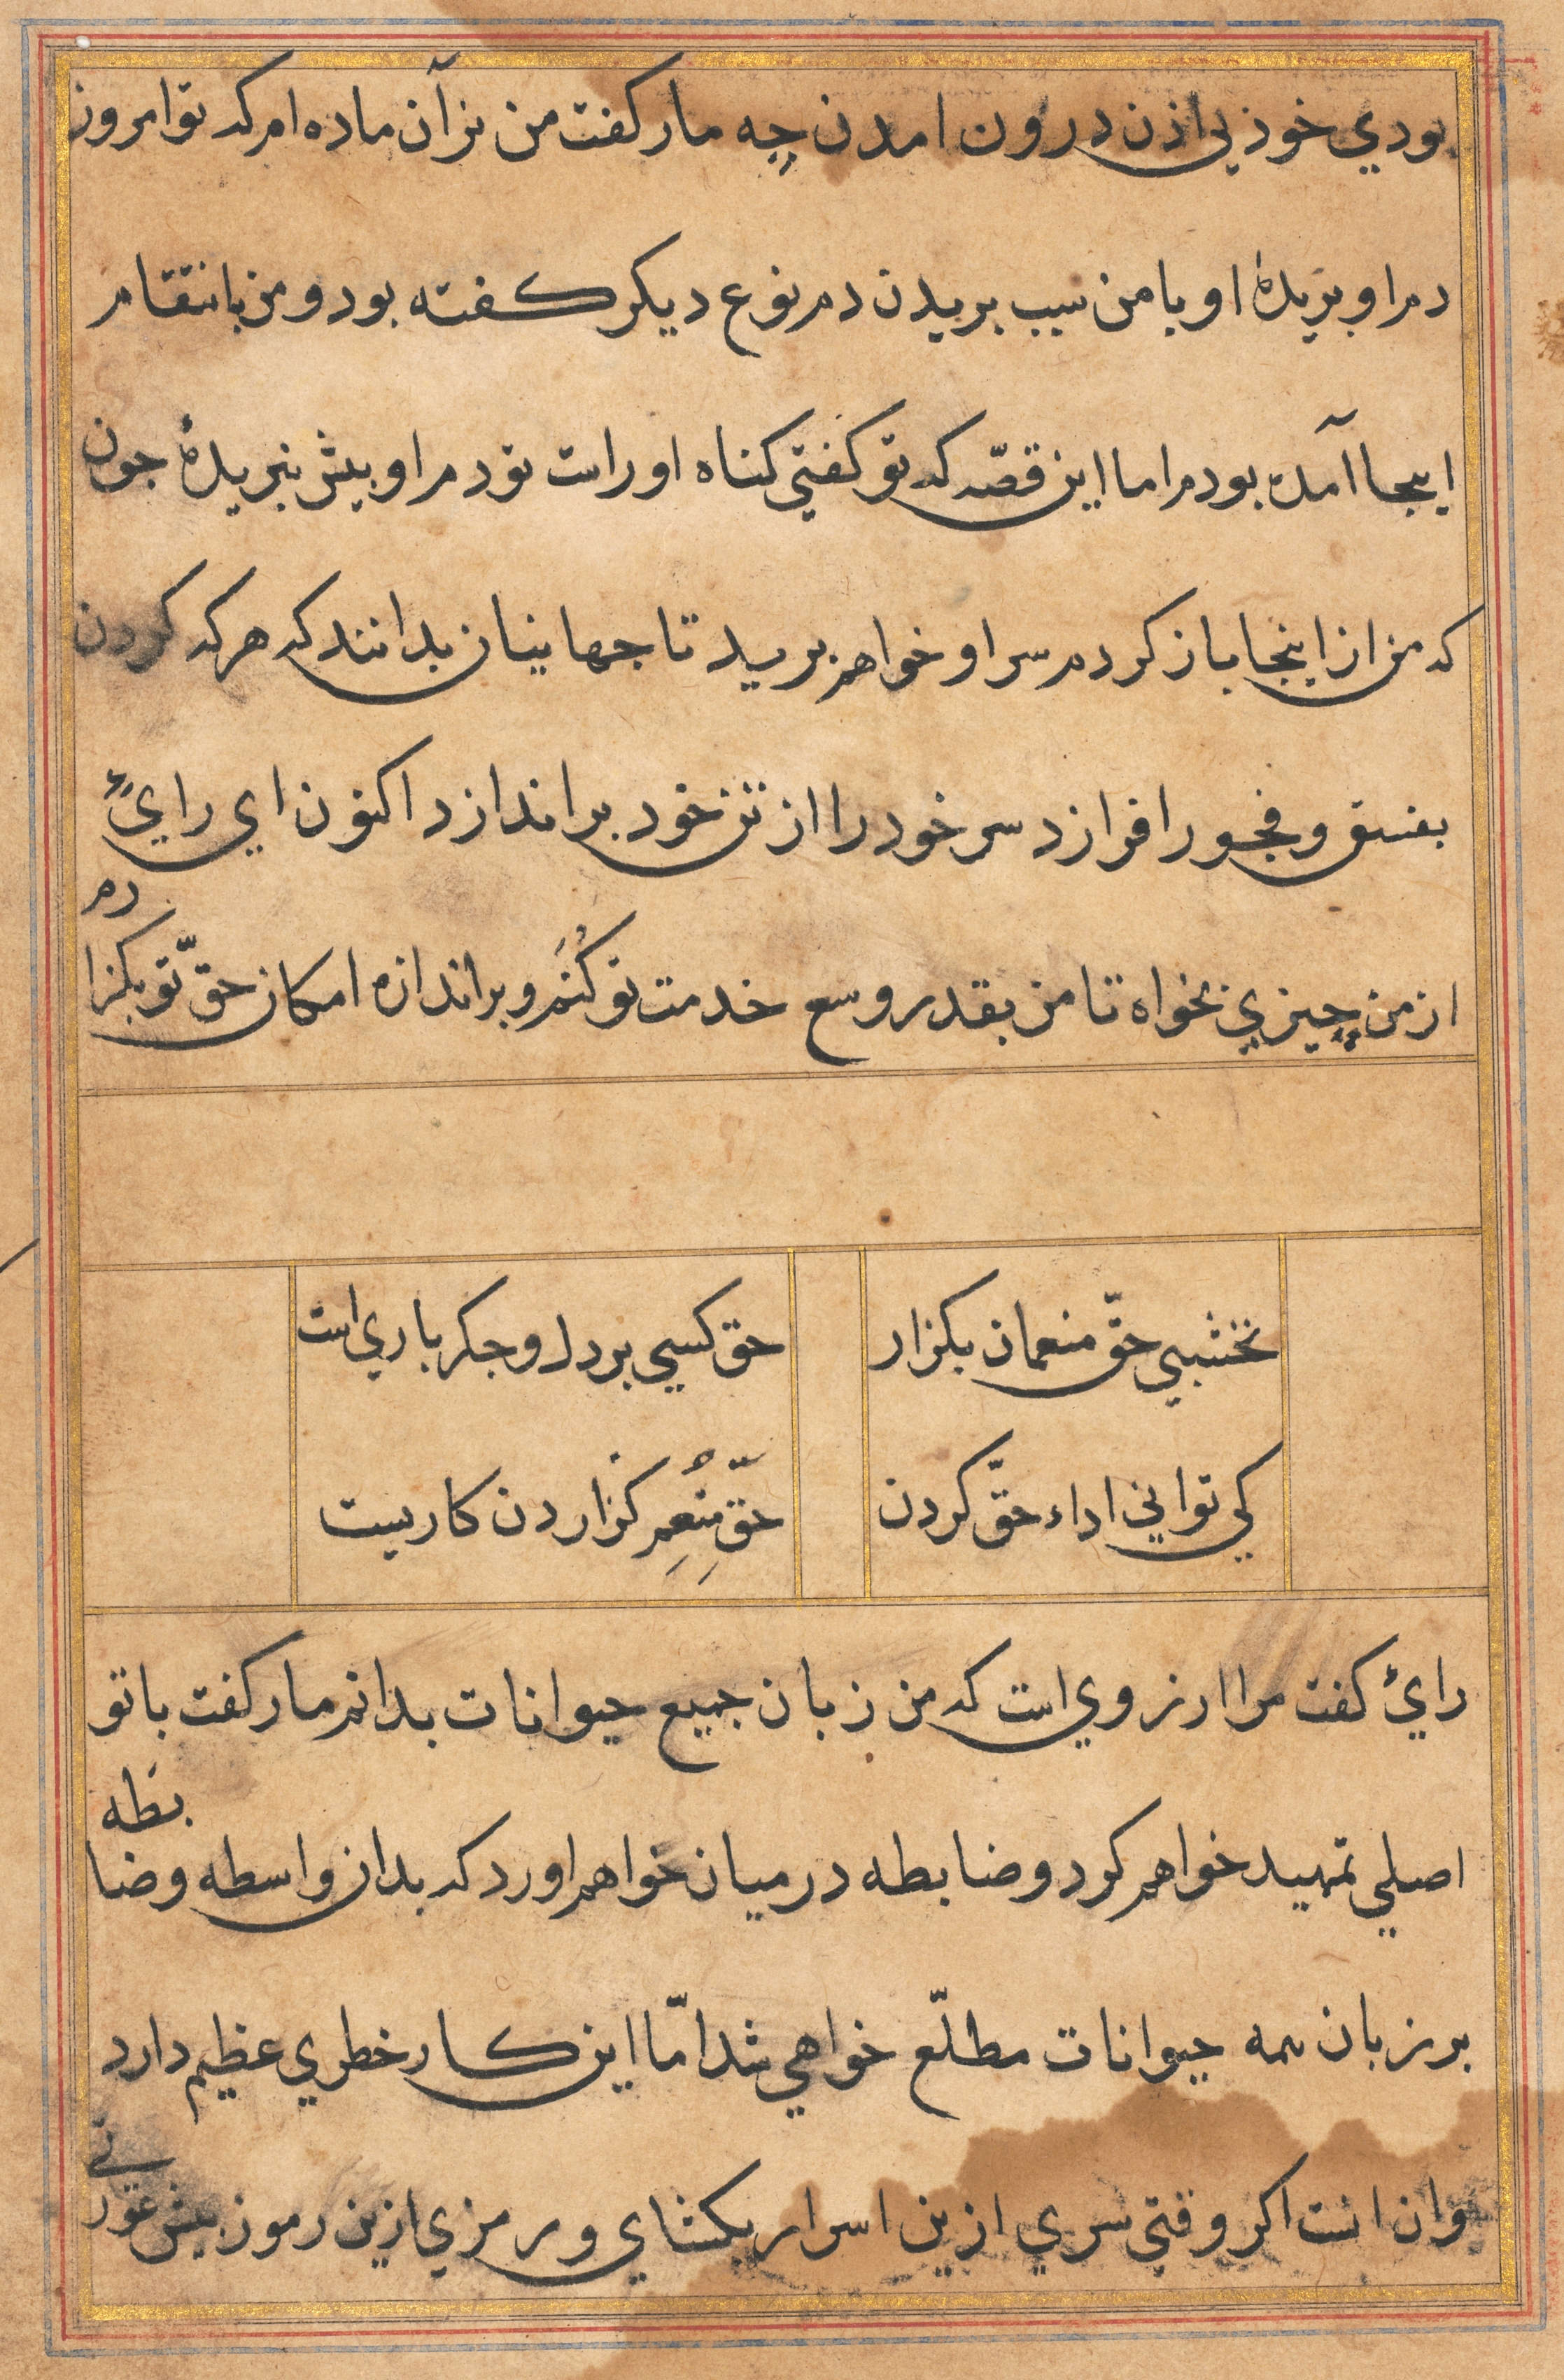 بودي خوذ بي اذن درون امدن چه مار كفت من نر آن ماده ام كه تو امروز
دم او بريدۀ او با من سبب بريدن دم نوع ديكر كفته بود و من بانتقام
اينجا آمده بودم اما اين قصّه كه تو كفتي كناه اوراست تو دم او بيش نبريدۀ جون
كه من از اينجا باز كردم سر او خواهم بريد تا جهانيان بدانند كه هر كه كردن
بفسق و فجور افرازد سر خود را از تن خود براندازد اكنون اي رايئ
از من چيزي بخواه تا من بقدر وسع خدمت تو كُنَم و بر اندازه امكان حقّ تو بكزا
رم
نخشبي حقّ منعمان بكزار
حق كسي بر دل و جكر باري است
كي تواني اداء حقّ كردن
حقِّ مُنْعِم كزاردن كاريست
رايئ كفت مرا ارزوي است كه من زبان جميع حيوانات بدانم مار كفت با تو
اصلي تمهيد خواهم كرد و ضابطه در ميان خواهم اورد كه بدان واسطه و ضا
بطه
بر زبان همه حيوانات مطلّع خواهي شد امّا اين كار خطري عظيم دارد
وان انست اكر وقتي سري ازين اسرار بكشاي و رمزي ازين رموز پيش عور
تي